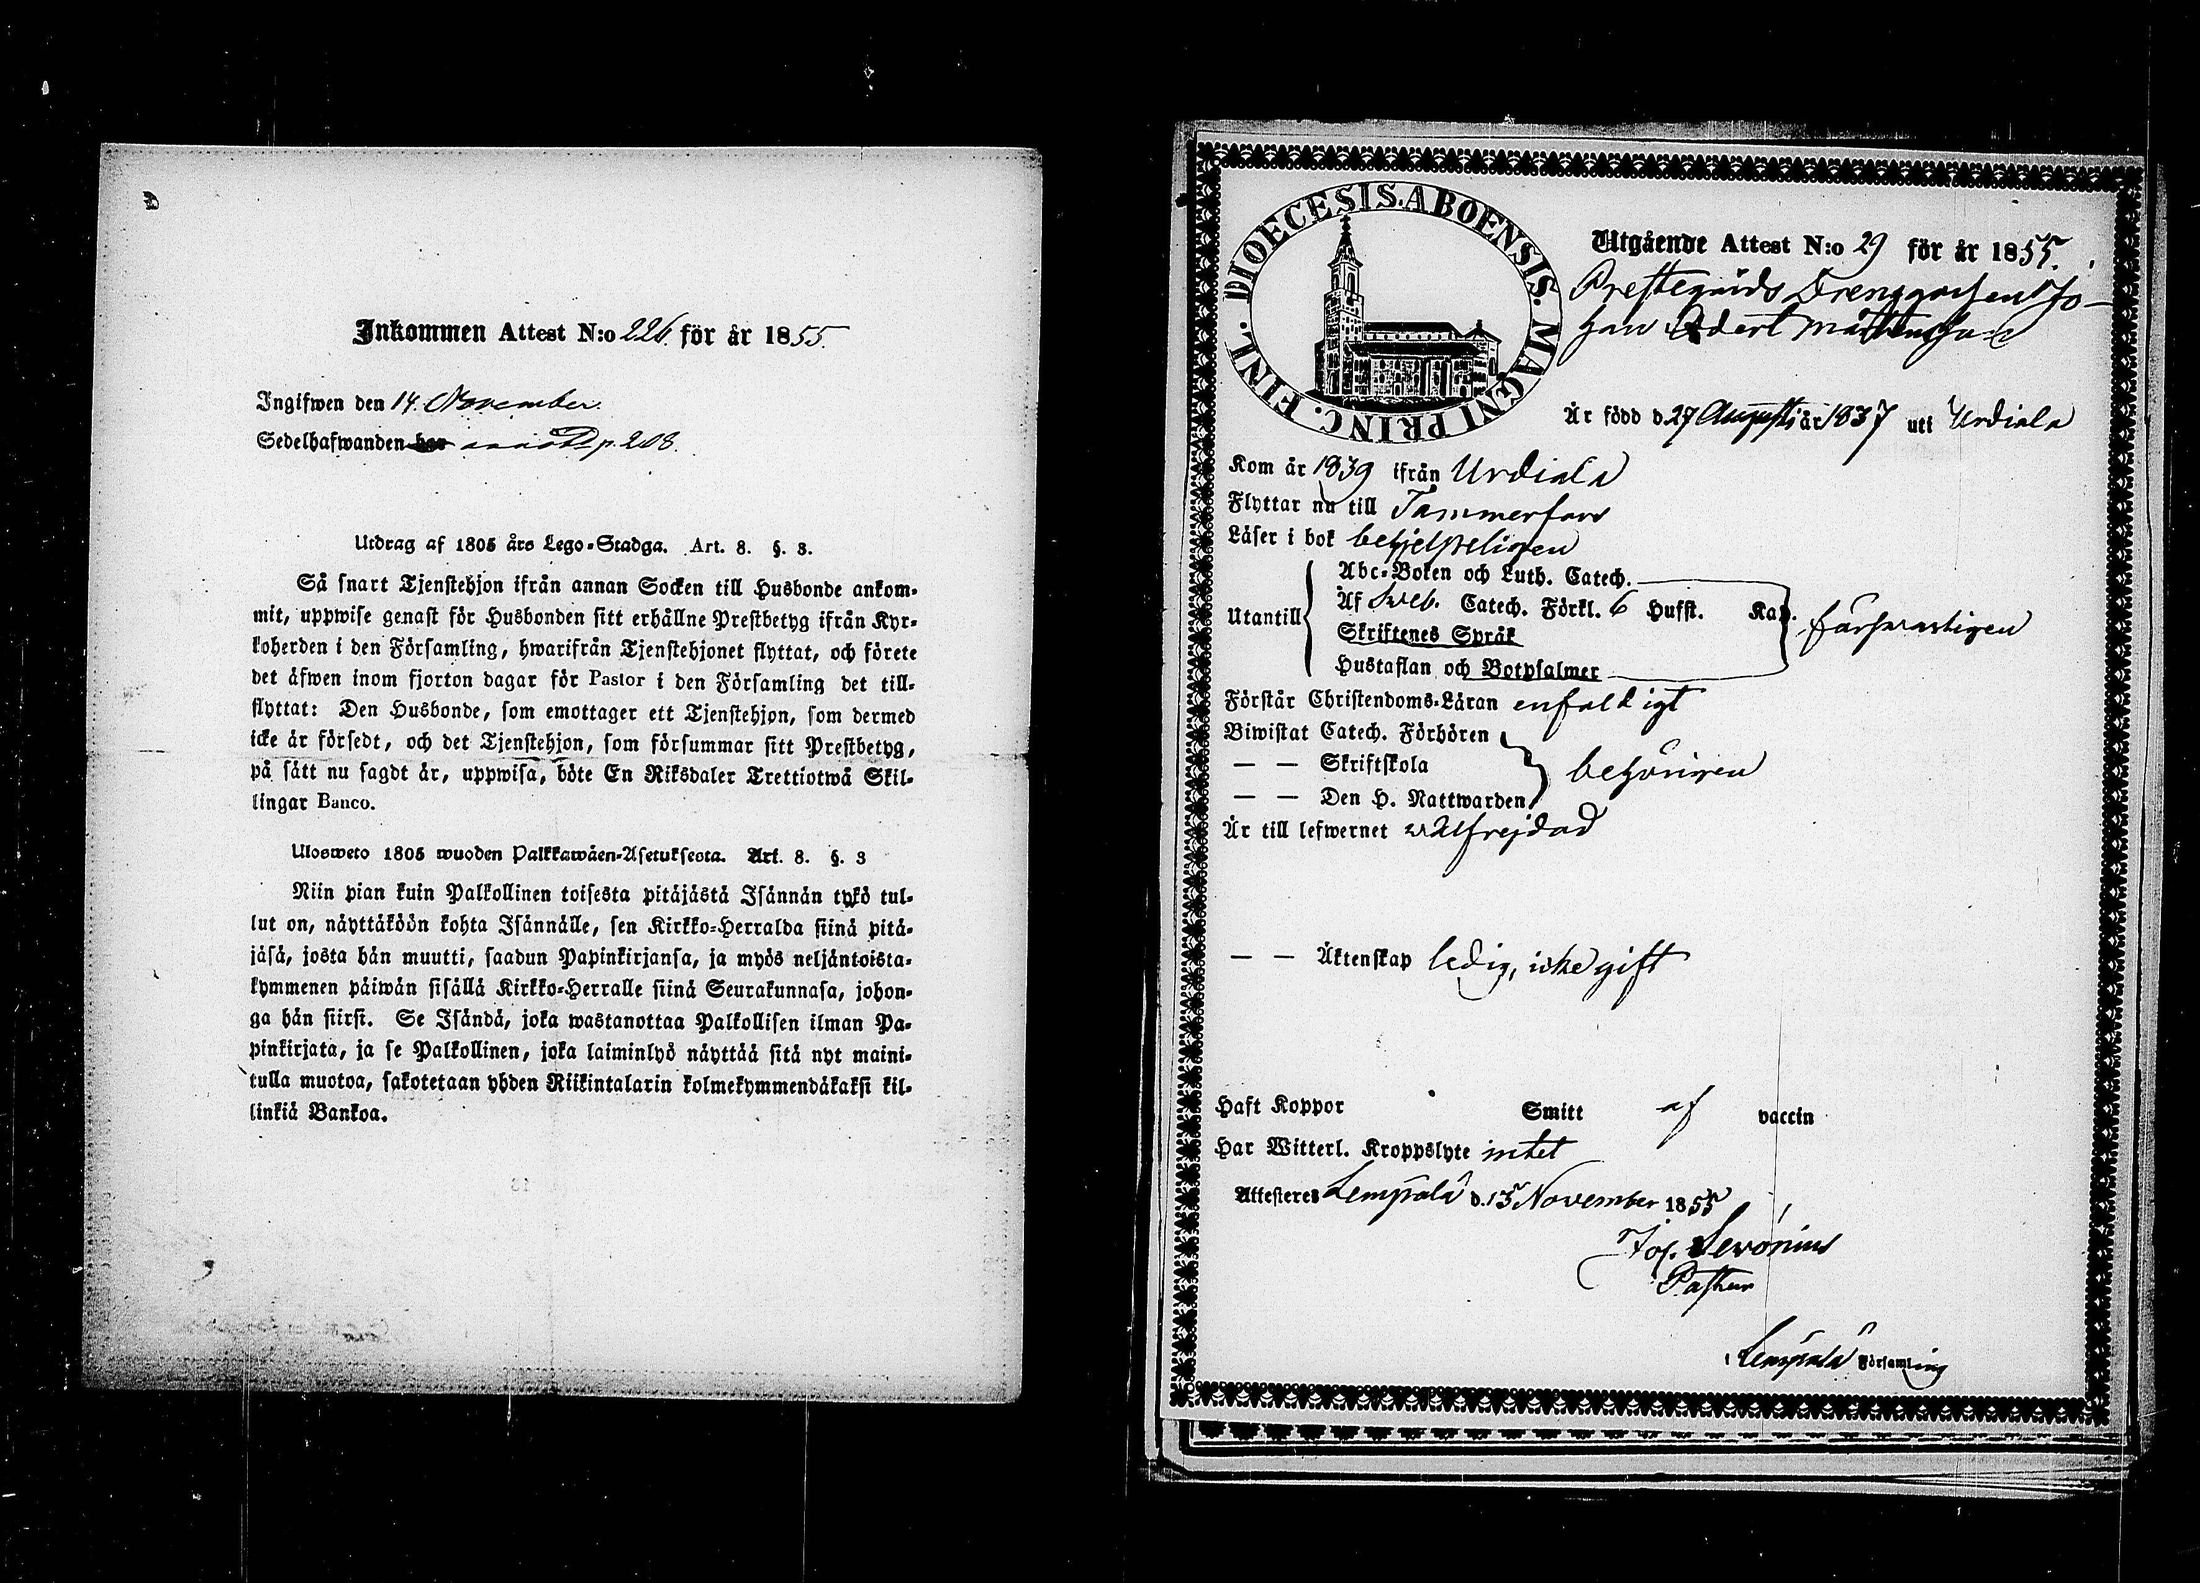 Inkommen Attest N:o 226. för år 1855.
Ingifwen den 14. November.
Sedelhafwanden har p. 208.
Utdrag af 1805 års Lego-Stadga. Art. 8. §. 3.
Så snart Tjenstehjon ifrån annan Socken till Husbonde ankom-
mit, uppwise genast för Husbonden sitt erhållne Prestbetyg ifrån Kyr-
koherden i den Församling, hwarifrån Tjenstehjonet flyttat, och förete
det äfwen inom fjorton dagar för Pastor i den Församling det till-
flyttat: Den Husbonde, som emottager ett Tjenstehjon, som dermed
icke är försedt, och det Tjenstehjon, som försummar sitt Prestbetyg,
på sätt nu sagdt är, uppwisa, böte En Riksdaler Trettiotwå Skil-
lingar Banco.
Ulosweto 1805 wuoden Palkkawäen-Asetuksesta. Art. 8. §. 3
Niin pian kuin Palkollinen toisesta pitäjästä Isännän tykö tul-
lut on, näyttäköön kohta Isännälle, sen Kirkko-Herralda siinä pitä-
jäsä, josta hän muutti, saadun Papinkirjansa, ja myös neljäntoista-
kymmenen päiwän sisällä Kirkko-Herralle siinä Seurakunnasa, johon-
ga hän siirsi. Se Isändä, joka wastanottaa Palkollisen ilman Pa-
pinkirjata, ja se Palkollinen, joka laiminlyö näyttää sitä nyt maini-
tulla muotoa, sakotetaan yhden Riikintalarin kolmekymmendäkaksi kil-
linkiä Bankoa.
DIOECESIS. ABOENSIS. MAGNI PRINC. FINL.
Utgående Attest N:o 29 för år 1855.
Prestegårds Drenggossen Jo-
han Edert Mårtensson
Är född d. 27 Augusti år 1837 uti Urdiala
Kom år 1839 ifrån Urdiala
Flyttar nu till Tammerfors
Läser i bok behjelpeligen
Utantill
Abc-Boken och Luth. Catech.
Af Sveb. Catech. Förkl. 6 Hufst. Kap. försvarligen
Skriftenes Språk
Hustaflan och Botpsalmer
Förstår Christendoms-Läran enfaldigt
Biwistat Catech. Förhören
— — Skriftskola behörigen
— — Den H. Nattwarden
Är till lefwernet wälfrejdad
— — Äktenskap ledig, icke gift
Haft Koppor Smitt af vaccin
Har Witterl. Kroppslyte intet
Attesteres Lempälä d. 13 November 1855
Jos. Servonius
Pastor
Lempälä Församling